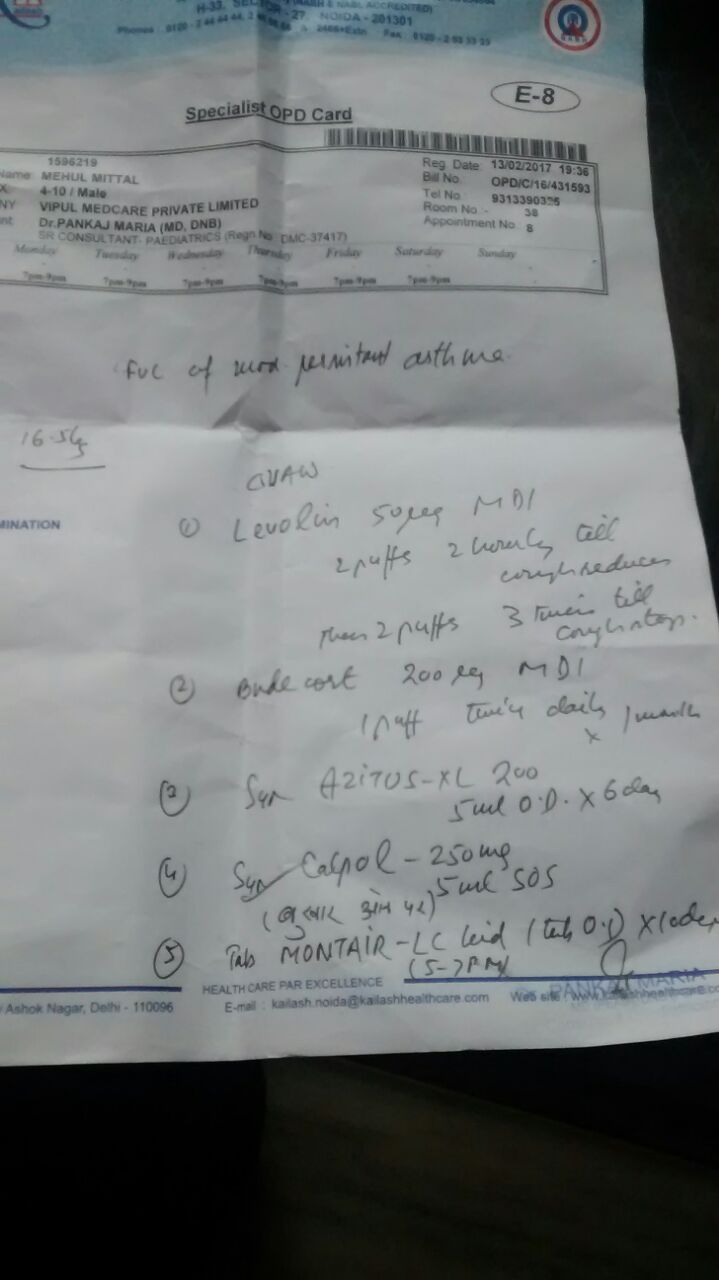 H-33, SECTOR-27, NOIDA - 201301
Specialist OPD Card
E-8
1596219
Name: MEHUL MITTAL
4-10 / Male
NY VIPUL MEDCARE PRIVATE LIMITED
Dr.PANKAJ MARIA (MD, DNB)
SR CONSULTANT- PAEDIATRICS (Regn No. DMC-37417)
Reg. Date: 13/02/2017 19:36
Bill No. OPD/C/16/431593
Tel No.
Room No.:- 38
Appointment No. 8
Monday Tuesday Wednesday Thursday Friday Saturday Sunday
7pm-9pm 7pm-9pm 7pm-9pm 7pm-9pm 7pm-9pm 7pm-9pm
of mod. persistant asthma.
16.5kg
MINATION
① Levolin 50µg MDI
2 puffs 2 hourly till
cough reduces
Then 2 puffs 3 times till
cough stop.
② Budecort 200µg MDI
1 puff twice daily x 1 month
③ Syr AZITUS-XL 200
5ml O.D. X 6 day
④ Syr Calpol - 250mg
5ml SOS
(बुखार आने पर)
⑤ Tab MONTAIR-LC kid
(5-7PM)
HEALTH CARE PAR EXCELLENCE
Ashok Nagar, Delhi - 110096
E-mail : kailash.noida@kailashhealthcare.com
Web site
PANKAJ MARIA